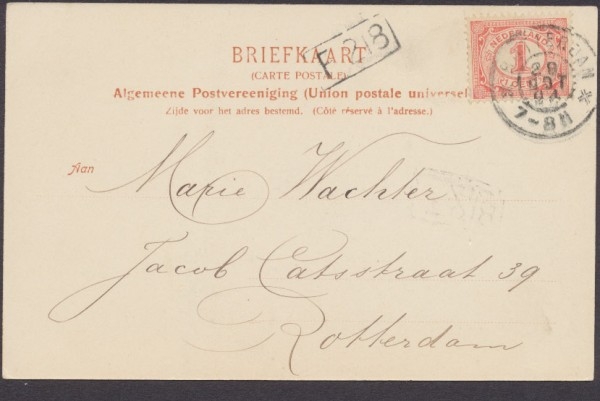 BRIEFKAART
(CARTE POSTALE)
Algemeene Postvereeniging (Union postale universel
Zijde voor het adres bestemd. (Côté réservé à l'adresse.)
NEDERLAND
1
7-8N
Aan
Marie Wachter
Jacob Catsstraat 39
Rotterdam